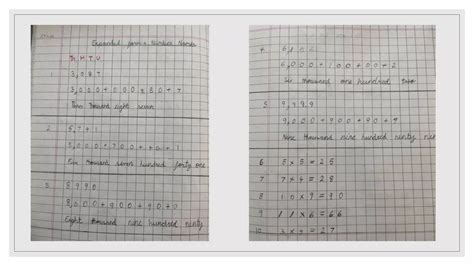 Expanded form & Number Names
Th H T U
1. 3,087
3,000+000+80+7
Three thousand eighty seven
2. 5,741
5,000+700+40+1
Five thousand seven hundred forty one
3. 8990
8,000+900+90+0
Eight thousand nine hundred ninety
4. 6,102
6,000+100+00+2
Six thousand one hundred two
5. 9,999
9,000+900+90+9
Nine thousand nine hundred ninety nine
6 5 x 5 = 25
7 7 x 4 = 28
8 10 x 9 = 90
9 11 x 6 = 66
10 3 x 9 = 27